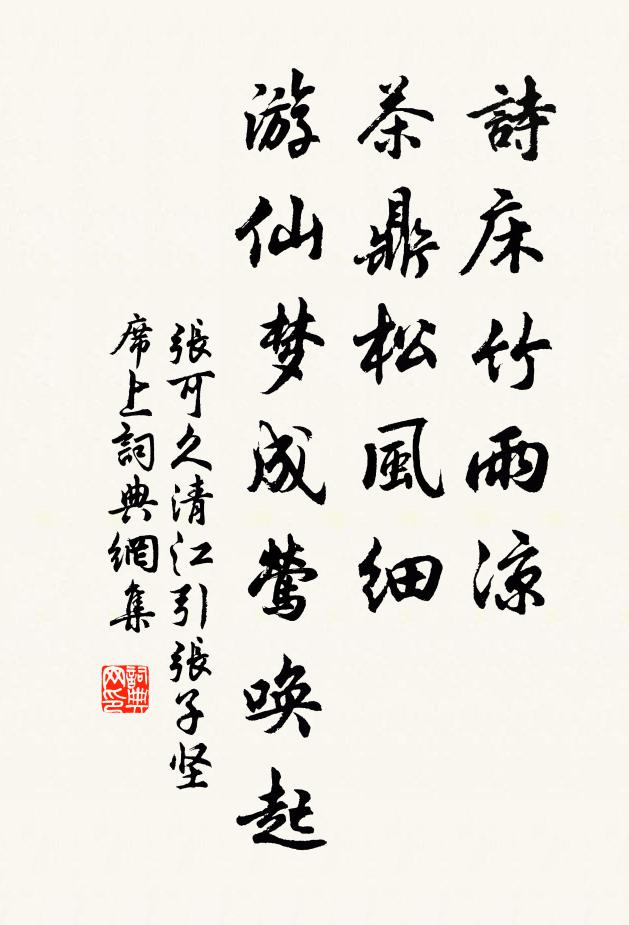 詩床竹雨凉
茶鼎松風細
游仙梦成鶯唤起
張可久清江引張子坚
席上詞典網集
詞典网印